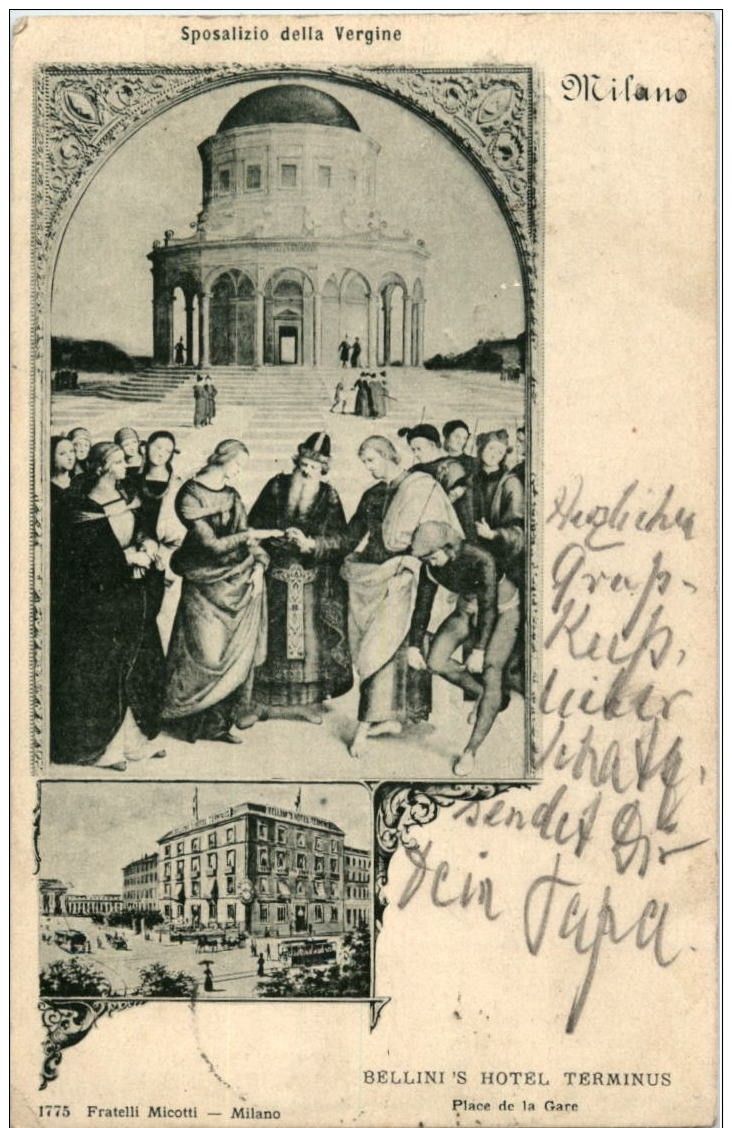 Sposalizio della Vergine
Milano
Herzlichen
Gruß-
Kuß,
lieber
Schatz,
sendet Dir
Dein Papa.
BELLINI'S HOTEL TERMINUS
BELLINI'S HOTEL TERMINUS
Place de la Gare
1775 Fratelli Micotti — Milano